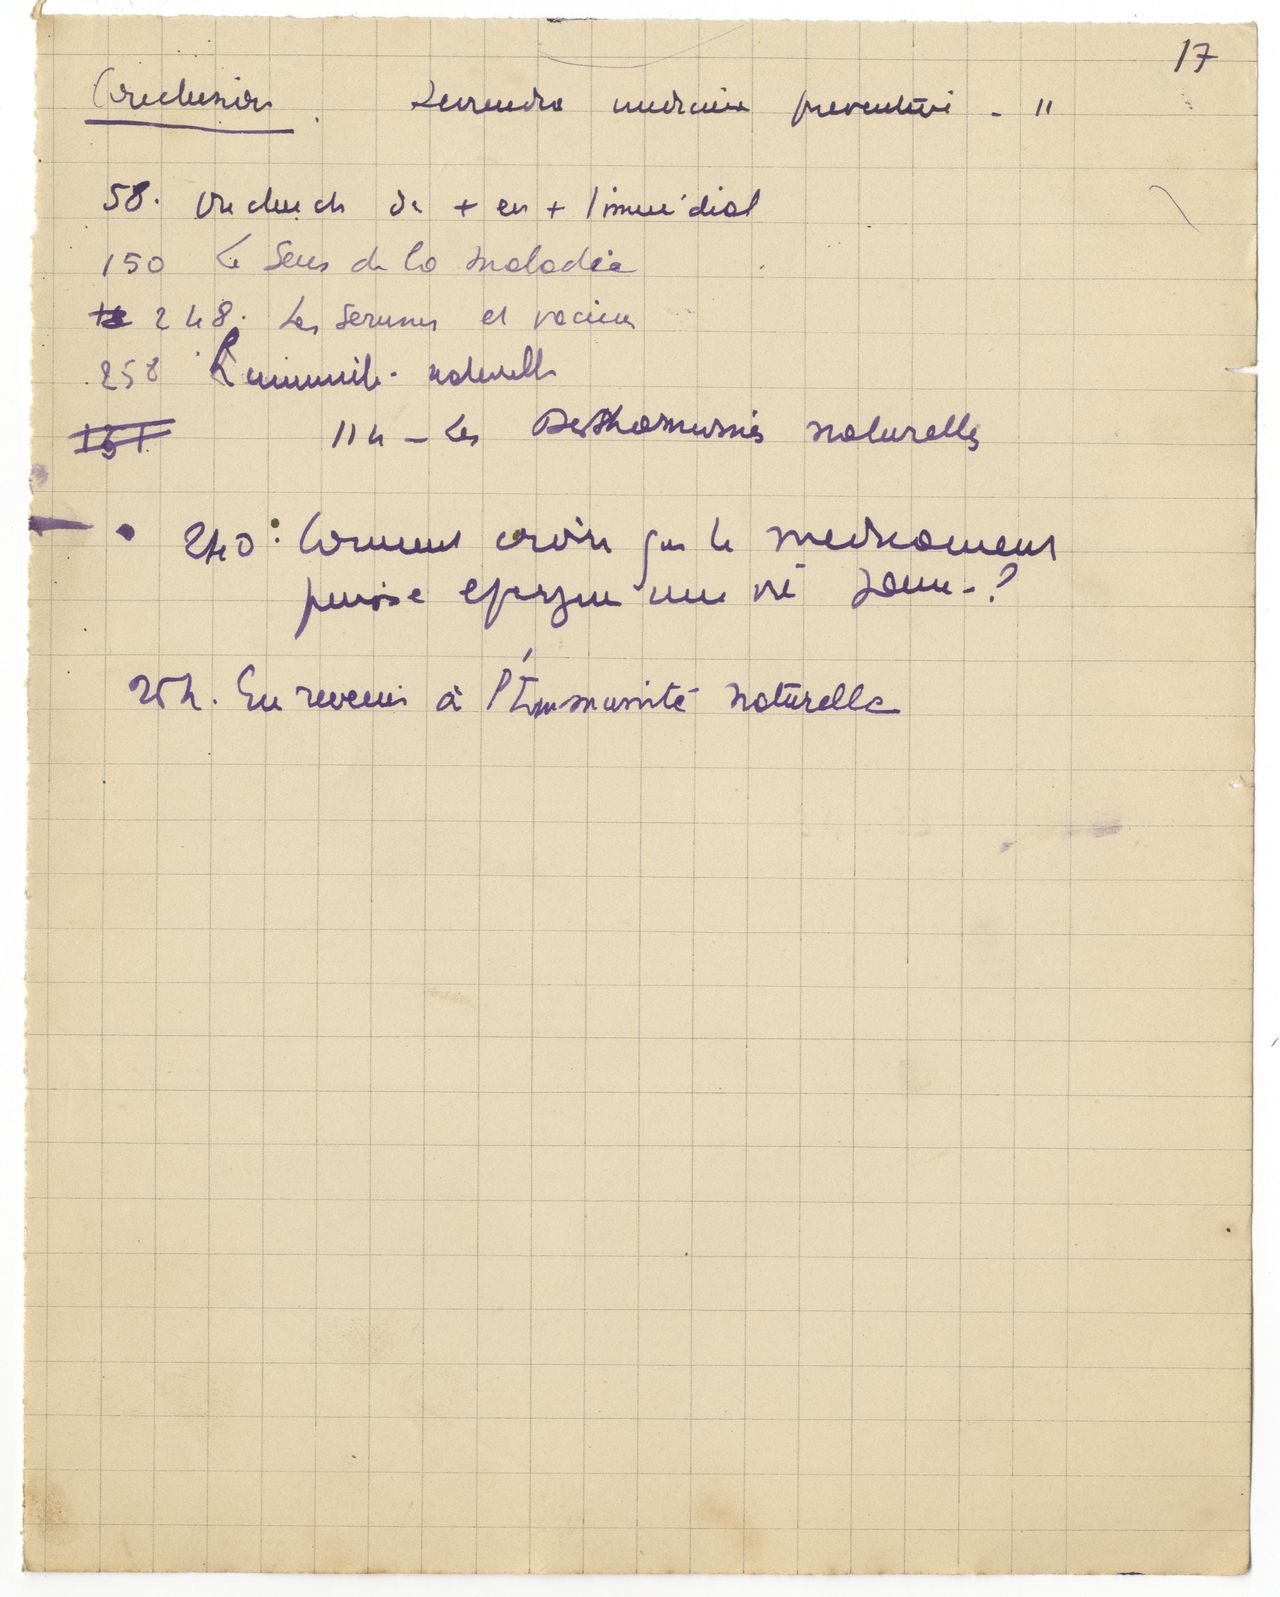 17
Conclusion. medecine preventive - "
58. On cherche de + en + l'immédiat
150 Le Sens de la maladie
248. Les serums et vaccins
258 L'immunité naturelle
114 - Les naturelles
240: Comment croire que le medicament
puisse epargner une vie saine - ?
254. En revenir à l'Immunité naturelle